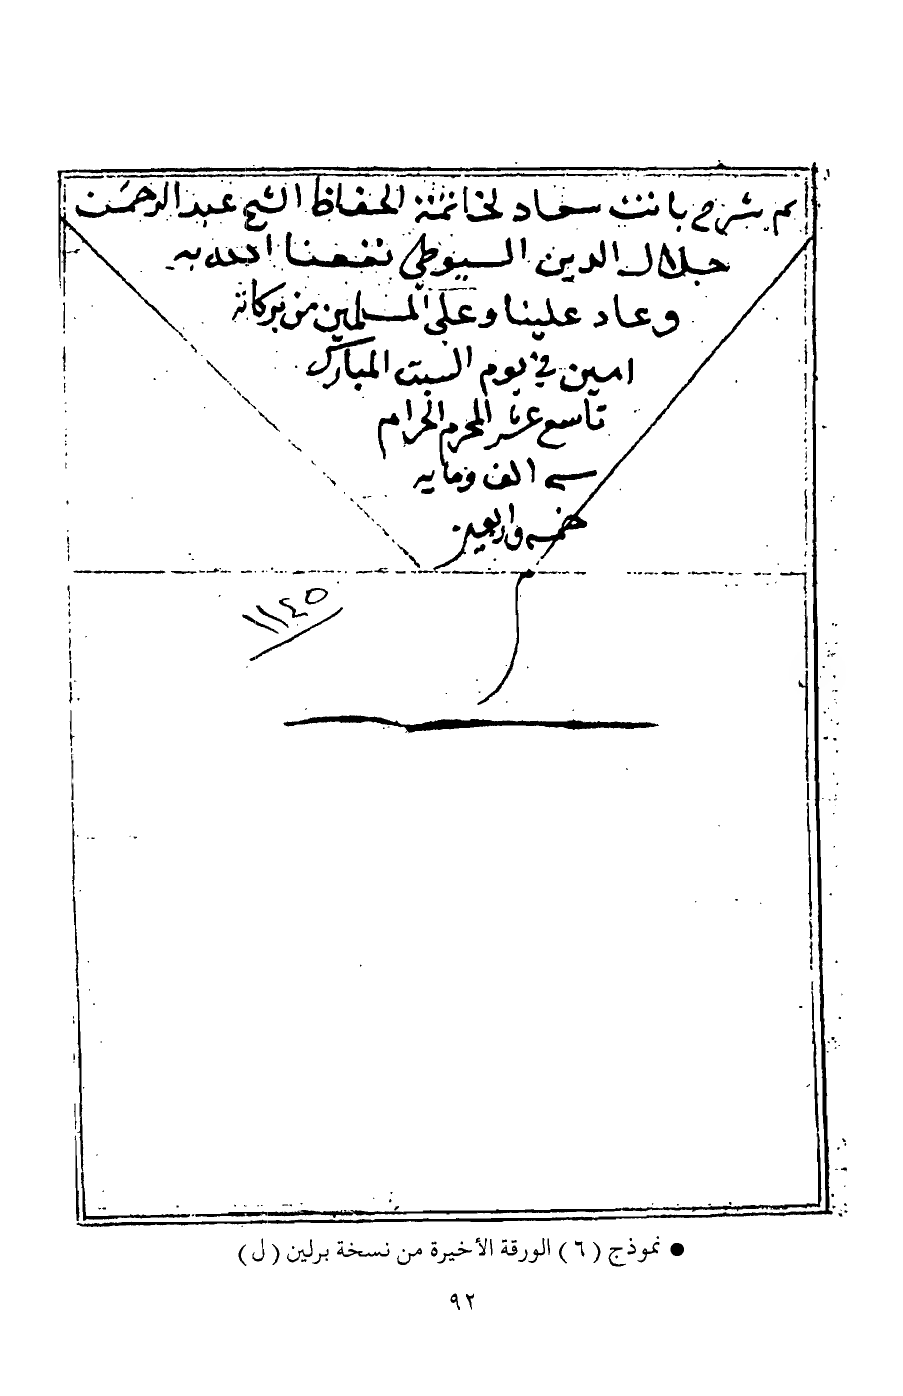 تم شرح بانت سعاد لخاتمة الحفاظ الشيخ عبد الرحمن
جلال الدين السيوطي نفعنا الله به
وعاد علينا وعلى المسلمين من بركاته
امين في يوم السبت المبارك
تاسع عشر المحرم الحرام
سنه الف ومايه
خمسه واربعين
١١٤٥
● نموذج ( ٦ ) الورقة الأخيرة من نسخة برلين ( ل )
٩٢